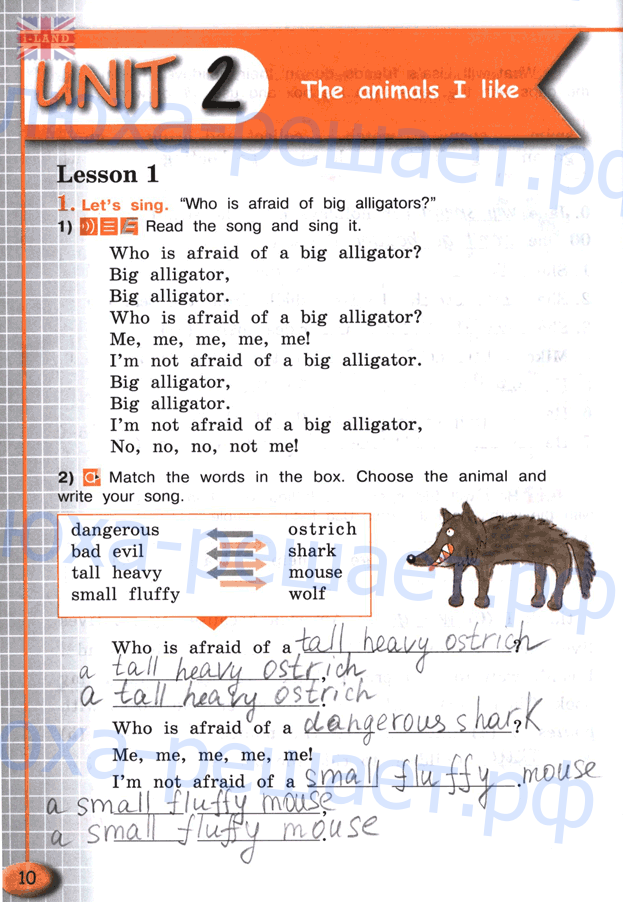 I-LAND
UNIT 2
The animals I like
Lesson 1
1. Let's sing. "Who is afraid of big alligators?"
1) Read the song and sing it.
Who is afraid of a big alligator?
Big alligator,
Big alligator.
Who is afraid of a big alligator?
Me, me, me, me, me!
I'm not afraid of a big alligator.
Big alligator,
Big alligator.
I'm not afraid of a big alligator,
No, no, no, not me!
2) Match the words in the box. Choose the animal and
write your song.
dangerous ostrich
bad evil shark
tall heavy mouse
small fluffy wolf
Who is afraid of a tall heavy ostrich?
a tall heavy ostrich,
a tall heavy ostrich.
Who is afraid of a dangerous shark?
Me, me, me, me, me!
I'm not afraid of a small fluffy mouse.
a small fluffy mouse,
a small fluffy mouse.
10
люха-решает.рф
люха-решает.рф
люха-решает.рф